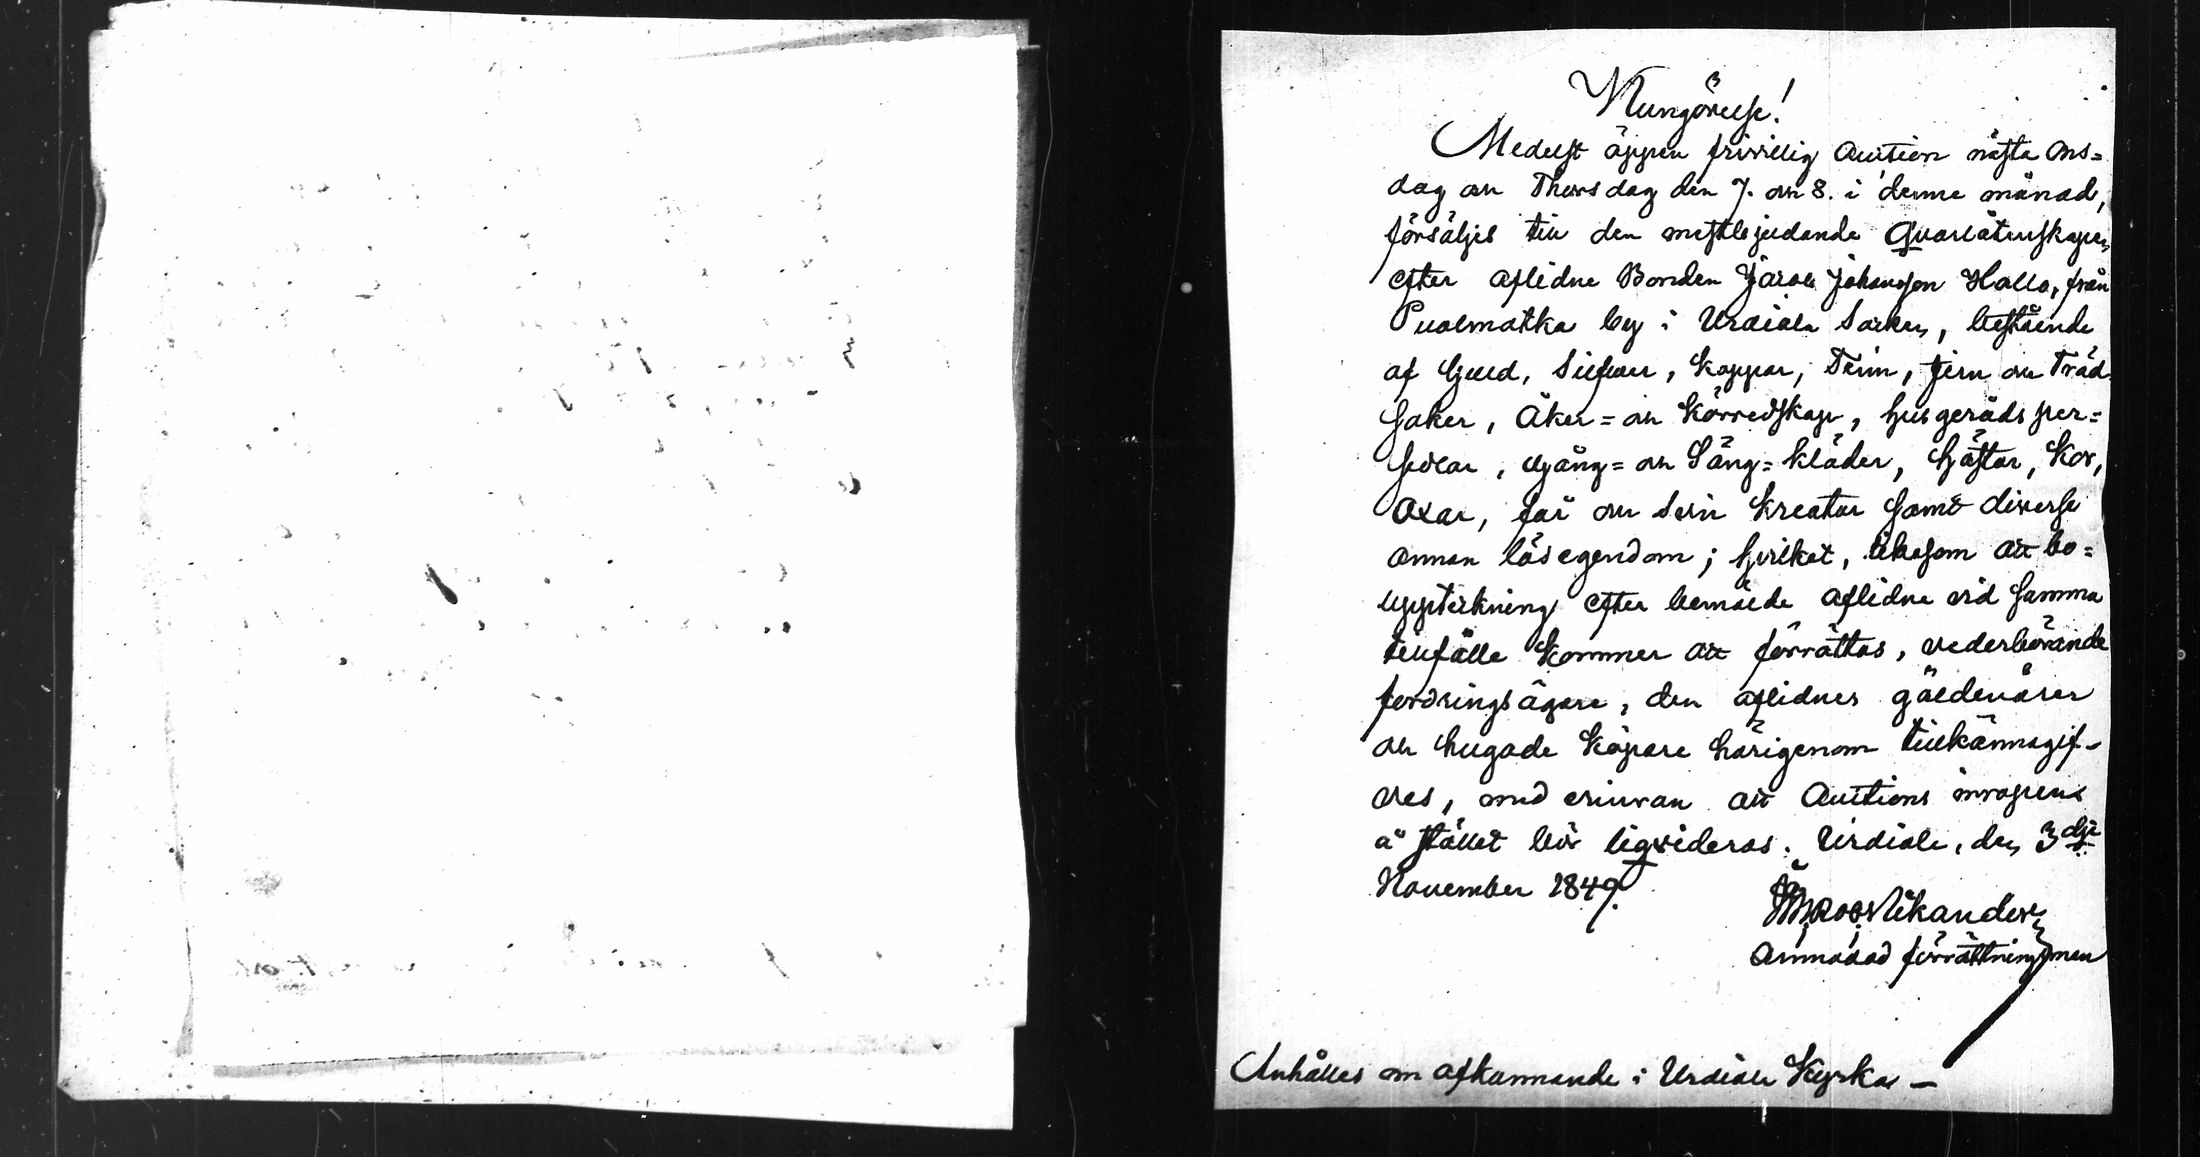 Kungörelse!
Medelst öppen frivillig Auction nästa Ons=
dag och Thorsdag den 7. och 8. i denne månad,
försäljes till den mestbjudande Qvarlåtenskapen
efter aflidne Bonden Jacob Johansson Hallo, från
Puolmatka by i Urdiala Socken, bestående
af Guld, Silfver, Koppar, Tenn, Jern och Träd
saker, Åker= och Körredskap, husgeråds per=
sedlar, gång= och Säng= kläder, hästar, Kor,
Oxar, får och Svin kreatur samt diverse
annan lösegendom; hvilket, likasom att bo=
uppteckning efter bemälde aflidne vid samma
tillfälle kommer att förrättas, vederbörande
fordringsägare, den aflidnes gäldenärer
och hugade köpare härigenom tillkännagif-
ves, med erinran att Auctions inropens
å stället bör liqvideras. Urdiala, den 3dje
November 1849.
Nikander
Anmodad förrättningsman
Anhålles om afkunnande i Urdiala Kyrka –